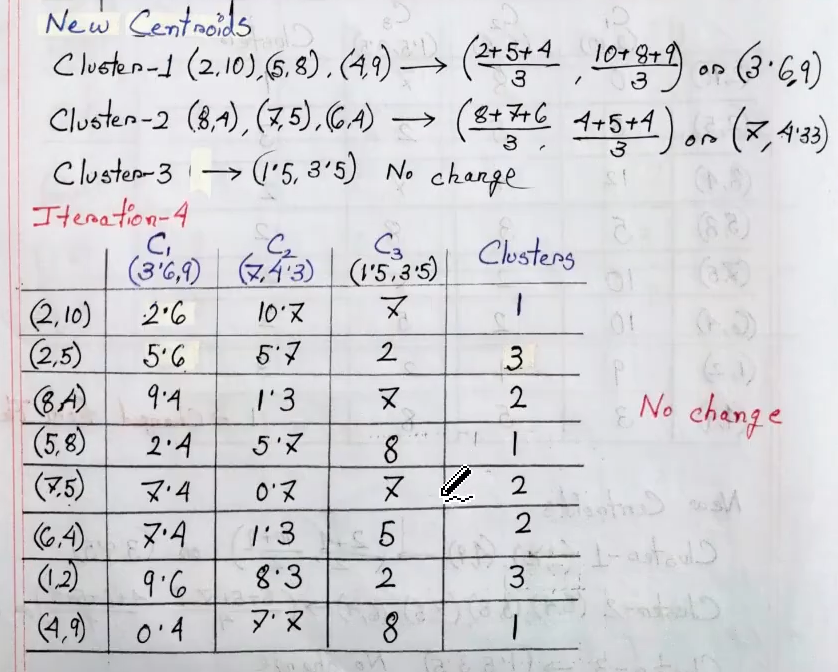 New Centroids
Cluster-1 (2,10),(5,8),(4,9) → (2+5+4/3, 10+8+9/3) or (3·6,9)
Cluster-2 (8,4),(7,5),(6,4) → (8+7+6/3, 4+5+4/3) or (7,4·33)
Cluster-3 → (1·5, 3·5) No change
Iteration-4
C₁ (3·6,9) C₂ (7,4·3) C₃ (1·5,3·5) Clusters
(2,10) 2·6 10·7 7 1
(2,5) 5·6 5·7 2 3
(8,4) 9·4 1·3 7 2
No change
(5,8) 2·4 5·7 8 1
(7,5) 7·4 0·7 7 2
(6,4) 7·4 1·3 5 2
(1,2) 9·6 8·3 2 3
(4,9) 0·4 7·7 8 1